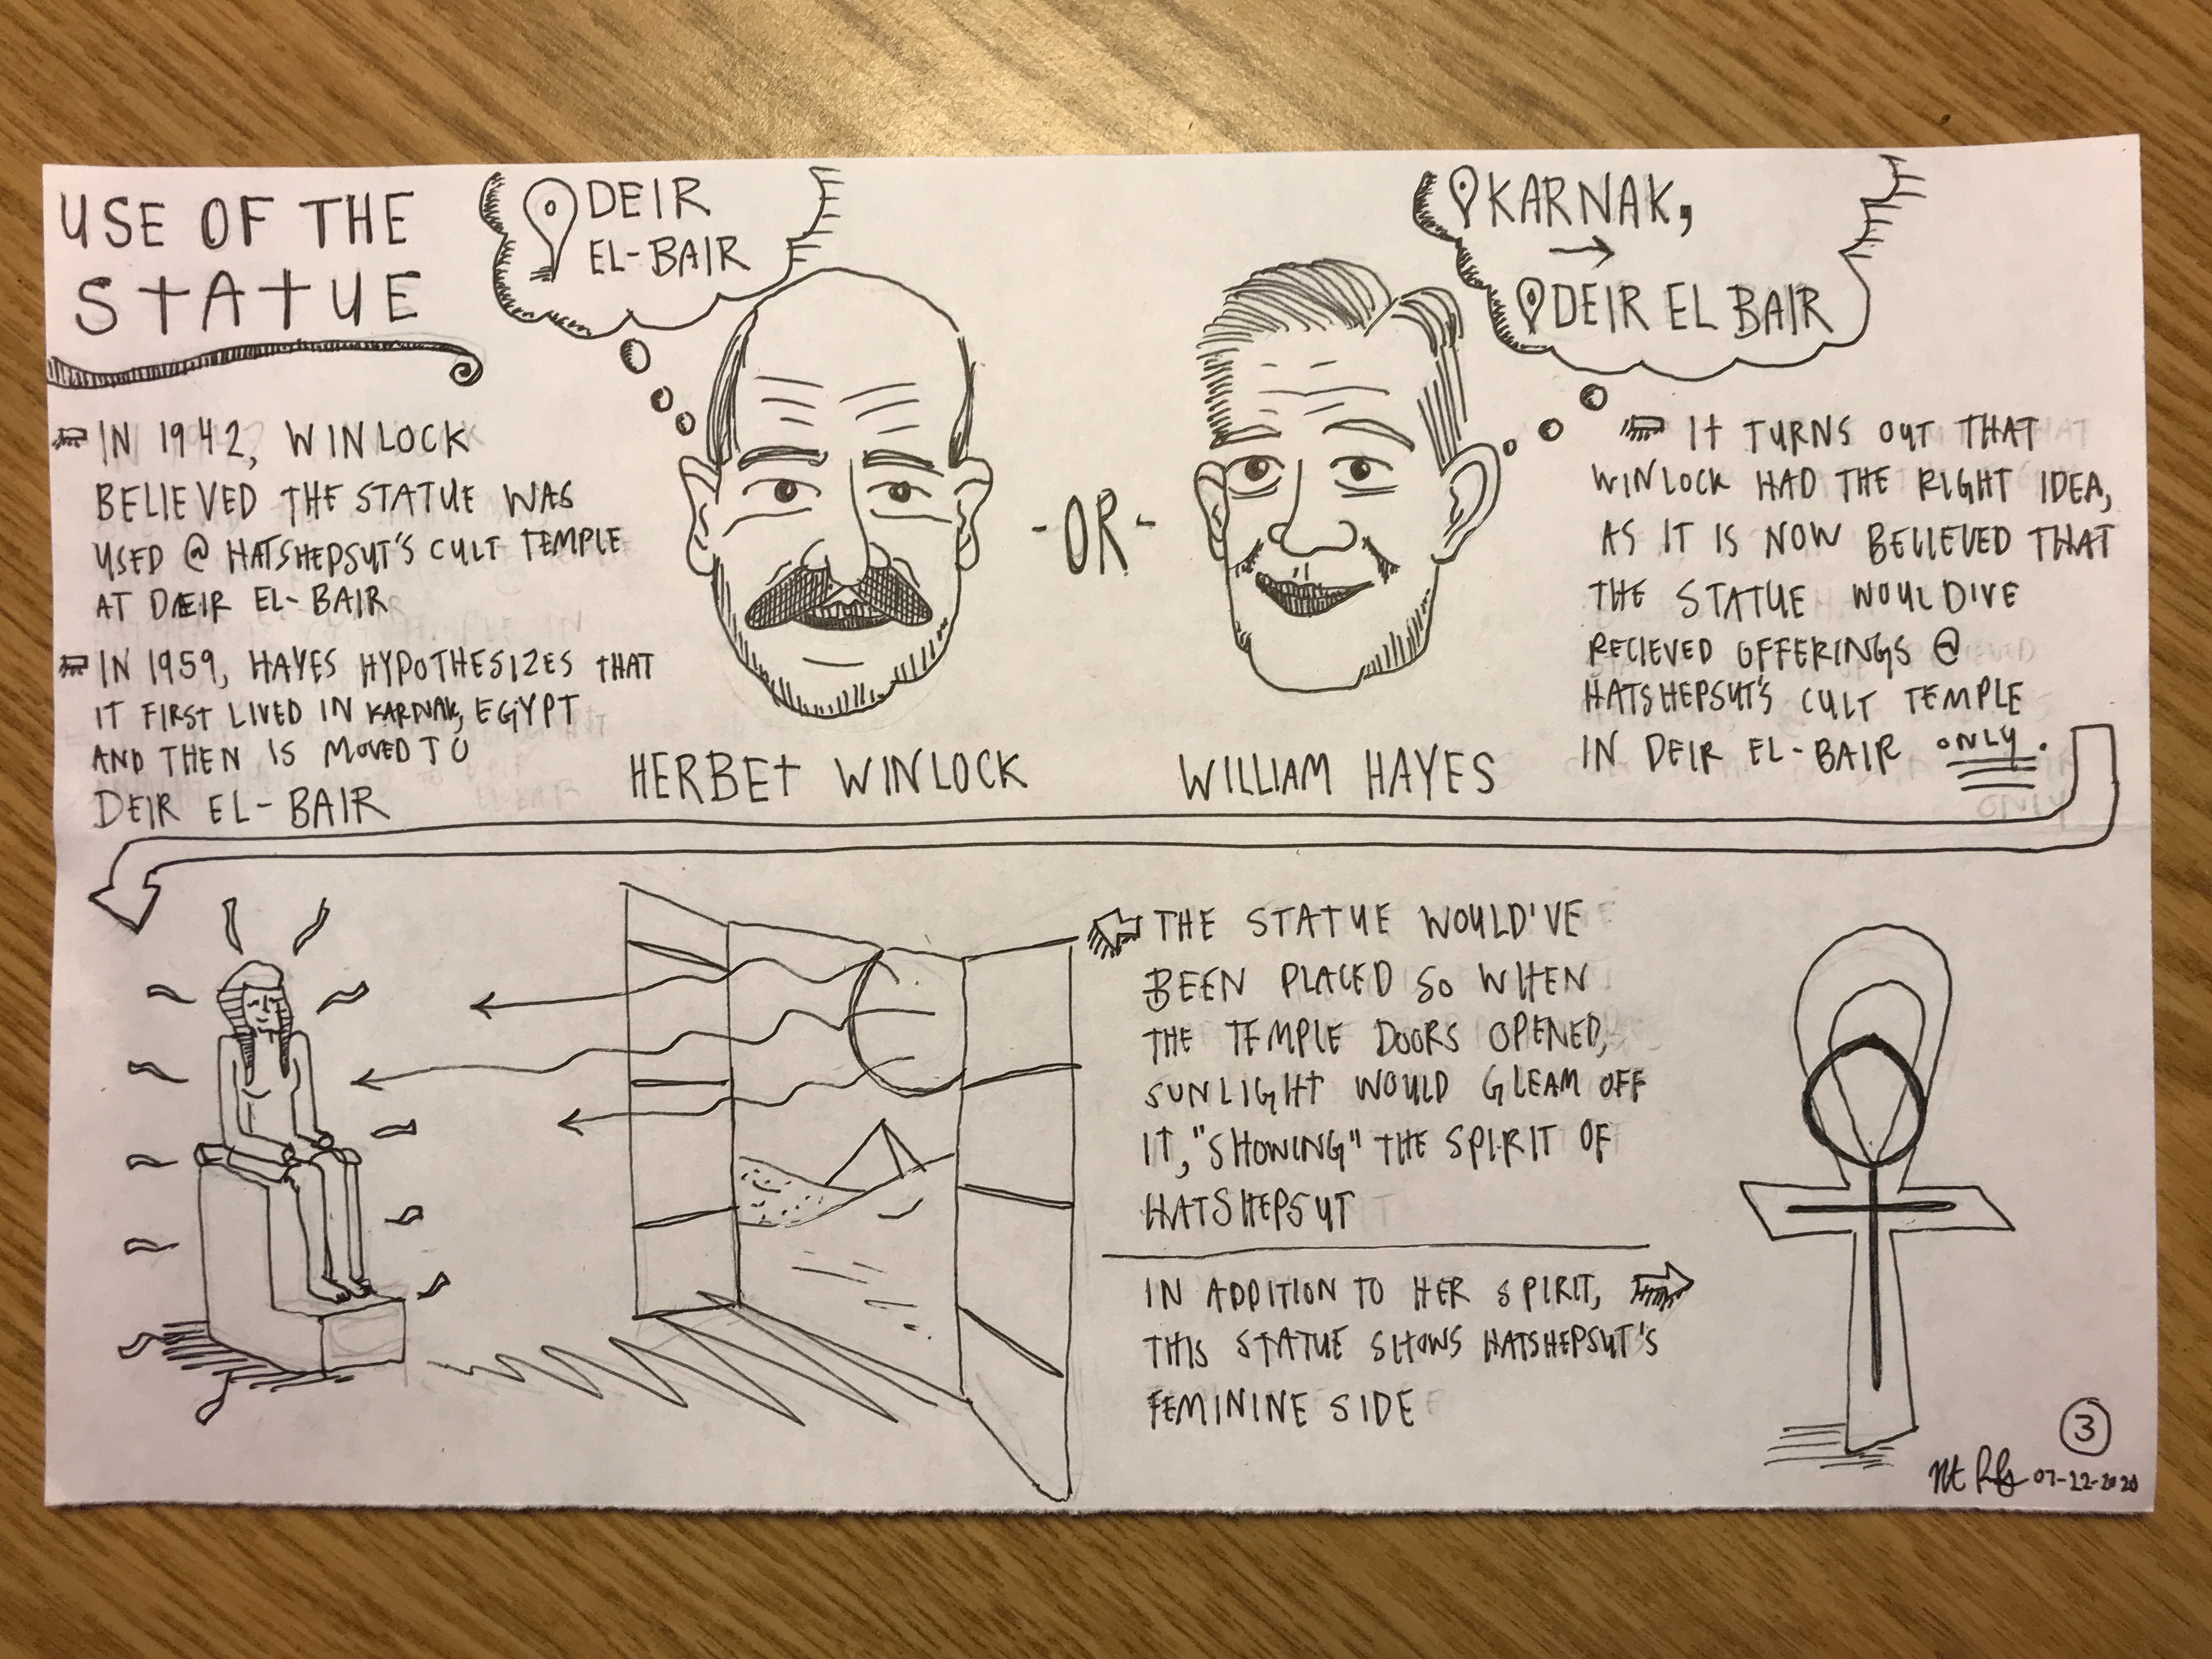 USE OF THE
STATUE
DEIR
EL-BAIR
KARNAK,
DEIR EL BAIR
IN 1942, WINLOCK
BELIEVED THE STATUE WAS
USED @ HATSHEPSUT'S CULT TEMPLE
AT DEIR EL-BAIR
IN 1959, HAYES HYPOTHESIZES THAT
IT FIRST LIVED IN KARNAK, EGYPT
AND THEN IS MOVED TO
DEIR EL-BAIR
-OR-
HERBET WINLOCK
WILLIAM HAYES
IT TURNS OUT THAT
WINLOCK HAD THE RIGHT IDEA,
AS IT IS NOW BELIEVED THAT
THE STATUE WOULDIVE
RECIEVED OFFERINGS @
HATSHEPSUT'S CULT TEMPLE
IN DEIR EL-BAIR ONLY.
THE STATUE WOULD'VE
BEEN PLACED SO WHEN
THE TEMPLE DOORS OPENED,
SUNLIGHT WOULD GLEAM OFF
IT, "SHOWING" THE SPIRIT OF
HATSHEPSUT
IN ADDITION TO HER SPIRIT,
THIS STATUE SHOWS HATSHEPSUT'S
FEMININE SIDE
3
07-22-2020